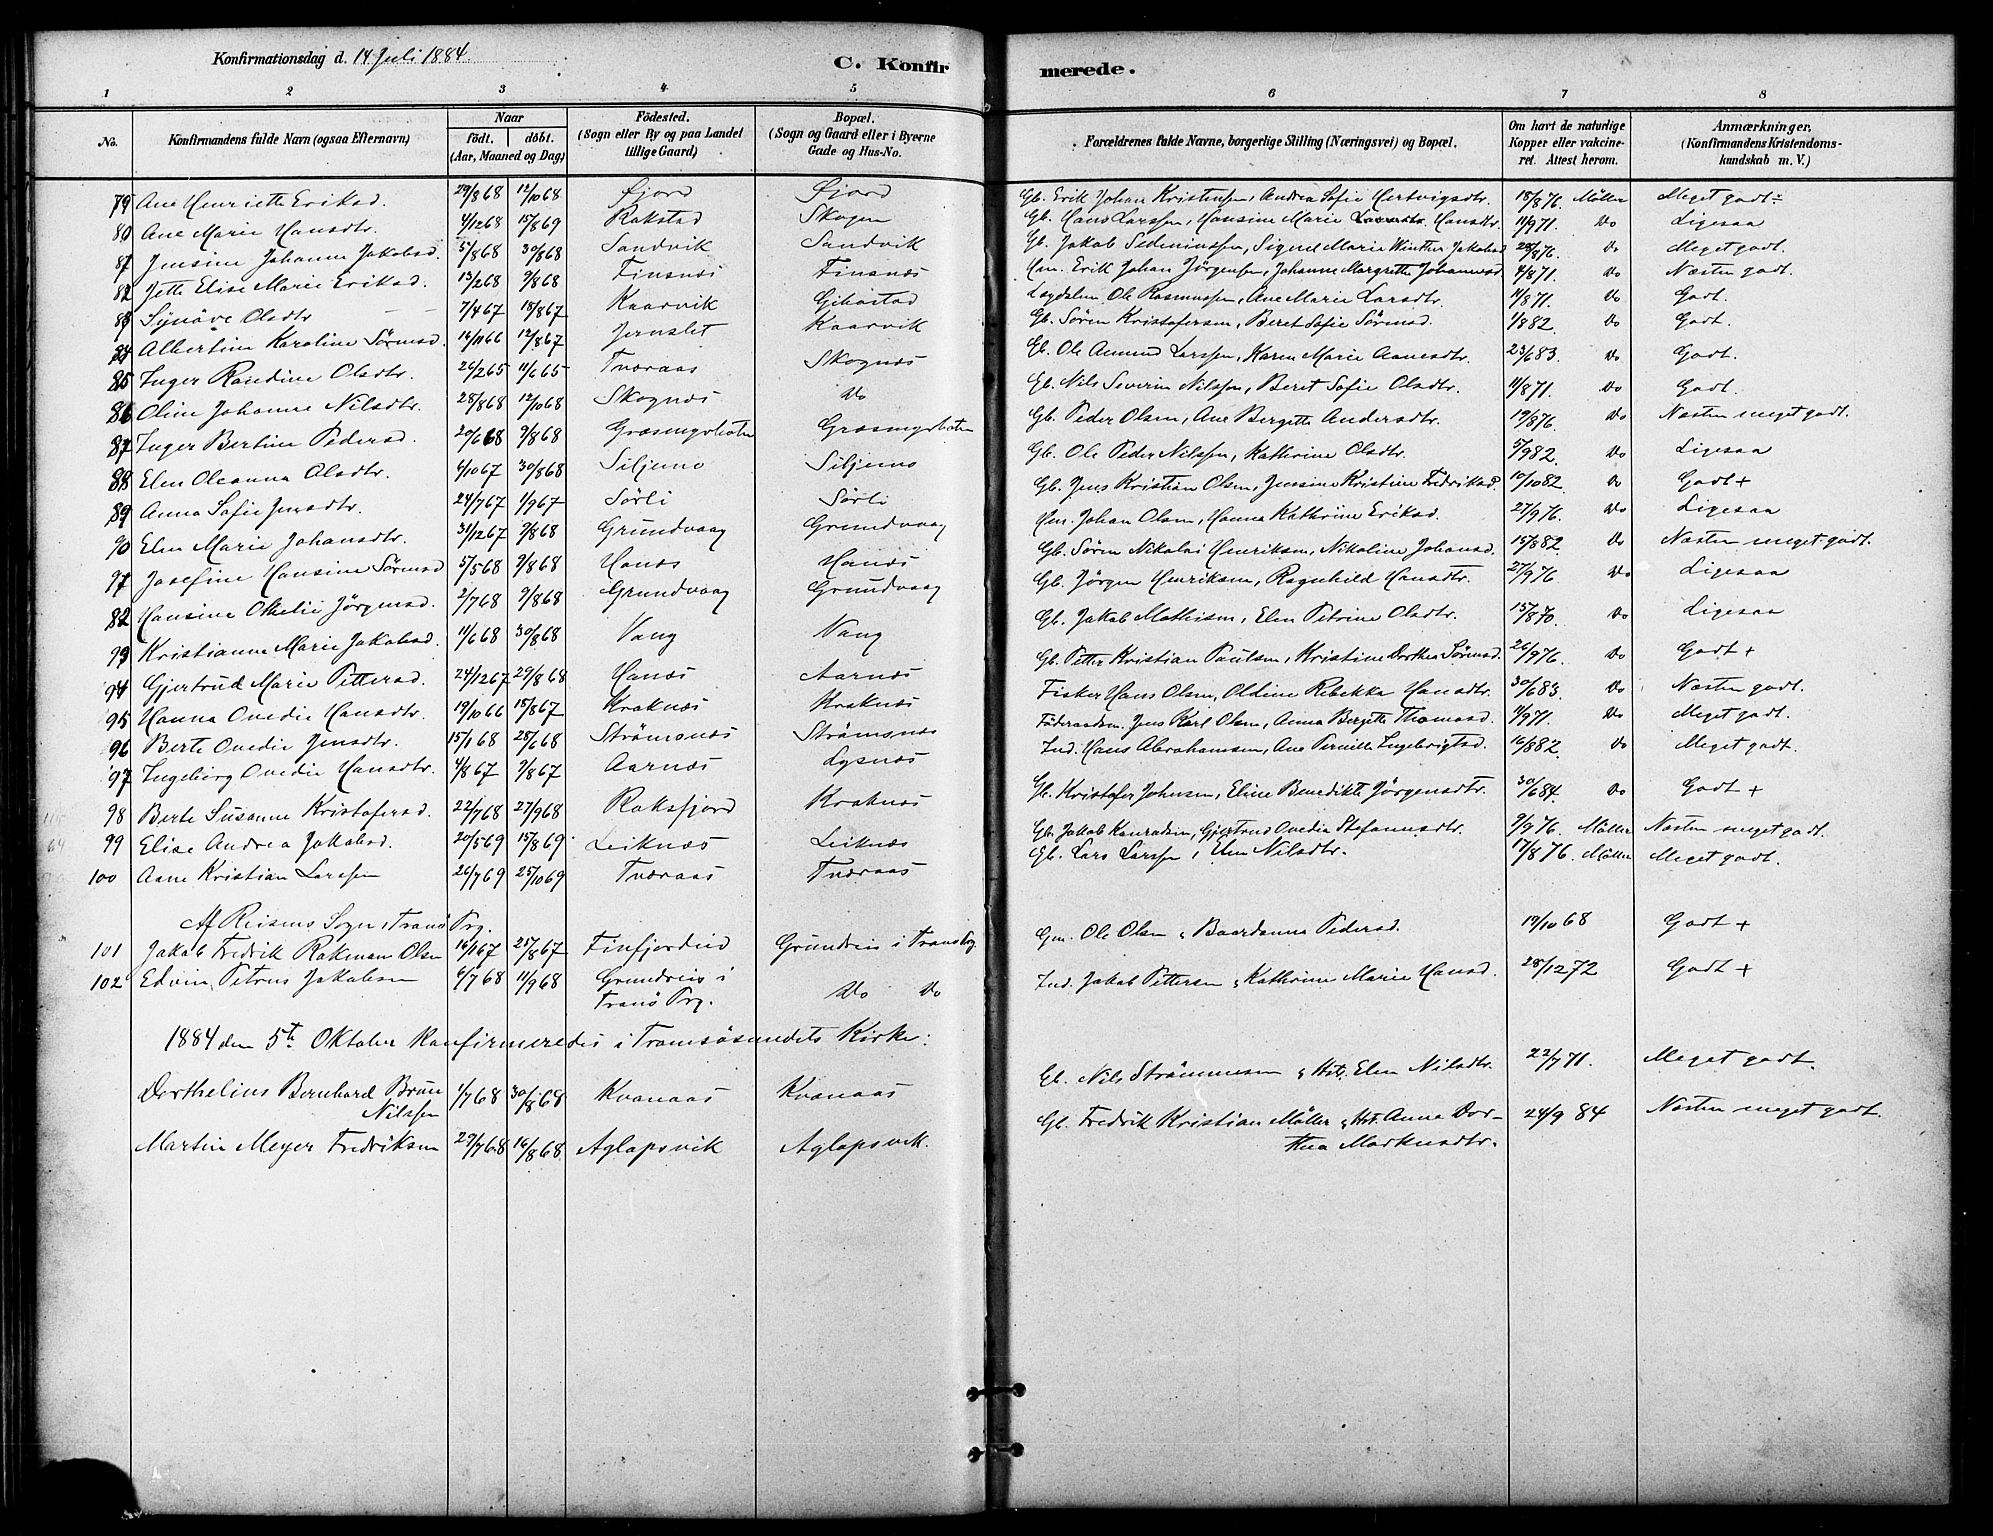 Konfirmationsdag d. 14 Juli 1884. C. Konfirmerede.
1 2 3 4 5 6 7 8
No. Konfirmandens fulde Navn (ogsaa Efternavn) Naar födt. döbt. (Aar, Maaned og Dag) Födested. (Sogn eller By og paa Landet tillige Gaard) Bopæl. (Sogn og Gaard eller i Byerne Gade og Hus-No. Forældrenes fulde Navne, borgerlige Stilling (Næringsvei) og Bopæl. Om havt de naturlige Kopper eller vakcineret. Attest herom. Anmærkninger, (Konfirmandens Kristendomskundskab m. V.)
79 Ane Henriette Eriksd. 29/8 68 12/10 68 Øjord Øjord Gb. Erik Johan Kristensen, Andrea Sofie Hertvigsdtr. 18/8 76. Möller Meget godt
80 Ane Marie Hansdtr. 4/12 68 15/8 69 Rakstad Skogen Gb. Hans Larssen, Hansine Marie Hansdtr. 11/9 71. Do Ligesaa
81 Jensine Johanne Jakobsd. 5/8 68 30/8 68 Sandvik Sandvik Gb. Jakob Sedeniussen, Signel Marie Winther Jakobsd 28/8 76. Do Meget godt.
82 Jette Elise Marie Eriksd. 13/2 68 9/8 68 Finsnæs Finsnæs Erik Johan Jörgensen, Johanne Margrethe Johannesd 4/8 71. Do Næsten godt.
83 Synöve Olsdtr 7/4 67 18/8 67 Kaarvik Gibostad Ole Rasmussen, Ane Marie Larsdtr. 11/8 71. Do Godt.
84 Albertine Karoline Sörensd. 14/11 66 12/8 67 Jernslet Kaarvik Gb. Sören Kristofersen, Beret Sofie Sörensd. 1/8 82. Do Godt.
85 Inger Randine Olsdtr. 26/2 65 11/6 65 Tværaas Skognæs Gb. Ole Amund Larssen, Karen Marie Aanesdtr. 23/6 83. Do Godt.
86 Oline Johanne Nilsdtr. 28/8 68 12/10 68 Skognæs Do Gb. Nils Severin Nilssen, Beret Sofie Olsdtr. 11/8 71. Do Godt
87 Inger Bertine Pedersd. 20/6 68 9/8 68 Græsmyrbotn Græsmyrbotn Gb. Peder Olsen, Ane Bergette Andersdtr. 19/8 76. Do Næsten meget godt.
88 Elen Oleanna Olsdtr. 6/10 67 30/8 68 Siljemo Siljemo Gb. Ole Peder Nilssen, Kathrine Olsdtr. 5/9 82. Do Ligesaa
89 Anna Sofie Jensdtr. 24/7 67 1/9 67 Sörli Sörli Gb. Jens Kristian Olsen, Jensine Kristine Fredriksd. 10/10 82. Do Godt +
90 Elen Marie Johansdtr. 31/12 67 9/8 68 Grundvaag Grundvaag Johan Olsen, Hanna Kathrine Eriksd. 27/9 76. Do Ligesaa
91 Josefine Hansine Sörensd 5/5 68 9/8 68 Hanæs Hanæs Gb. Sören Nikolai Henriksen, Nikoline Johansd. 15/8 82. Do Næsten meget godt.
82 Hansine Othelie Jörgensd. 2/7 68 9/8 68 Grundvaag Grundvaag Gb. Jörgen Henriksen, Ragnhild Hansdtr. 27/9 76. Do Ligesaa
93 Kristianne Marie Jakobsd. 11/6 68 30/8 68 Vang Vang Gb. Jakob Mathisen, Elen Petrine Olsdtr. 15/8 70. Do Ligesaa
94 Gjertrud Marie Pettersd. 24/12 67 29/8 68 Hanæs Aarnæs Gb. Petter Kristian Paulsen, Kristine Dorthea Sörensd. 26/9 76. Do Godt +
95 Hanna Ovedie Hansdtr. 19/10 66 18/8 67 Kraknæs Kraknæs Fisker Hans Olsen, Oldine Rebekka Hansdtr. 30/6 83. Do Næsten godt.
96 Berte Ovedie Jensdtr. 15/1 68 28/6 68 Strömsnæs Strömsnæs Föderaadsm. Jens Karl Olsen, Anna Bergitte Thomasd. 11/9 71. Do Meget godt.
97 Ingeborg Ovedie Hansdtr. 4/8 67 9/8 67 Aarnæs Lysnæs Ind. Hans Abrahamsen, Ane Pernille Ingebrigtsd. 16/8 82. Do Meget godt.
98 Berte Susanne Kristofersd. 22/7 68 27/9 68 Roksfjord Kraknæs Gb. Kristofer Johnsen, Eline Benedikte Jörgensdtr. 30/6 84. Do Godt +
99 Elise Andrea Jakobsd. 20/5 69 15/8 69. Leiknæs Leiknæs Gb. Jakob Konradsen, Gjertrud Ovedia Stefannsdtr. 9/9 76. Möller Næsten meget godt.
100 Aane Kristian Larssen 26/7 69 25/10 69 Tværaas Tværaas Gb. Lars Larssen, Elen Nilsdtr. 17/8 76. Möller Meget godt.
Af Reisens Sogn i Tranö Prg.
101 Jakob Fredrik Rakman Olsen 16/1 67 25/8 67 Finfjordeid Grundreis i Tranö Prg. Gm. Ole Olsen & Baardanna Pedersd. 19/10 68 Godt +
102 Edvin Petrus Jakobsen 6/7 68 11/9 68 Grundreis i Tranö Prg. Do Do Ind. Jakob Pettersen & Kathrine Marie Hansd. 28/12 72 Godt +
1884 den 5te Oktober konfirmeredes i Tromsösundets Kirke:
Dorthelius Bernhard Bruun Nilssen 1/7 68 30/8 68 Kvanaas Kvanaas Gb. Nils Strömmesen & Hst. Elen Nilsdtr. 22/7 71. Meget godt.
Martin Meyer Fredriksen 27/7 68 16/8 68 Aglapsvik Aglapsvik. Gb. Fredrik Kristian Möller & Hst. Anna Dorthea Markusdtr. 24/9 84 Næsten meget godt.